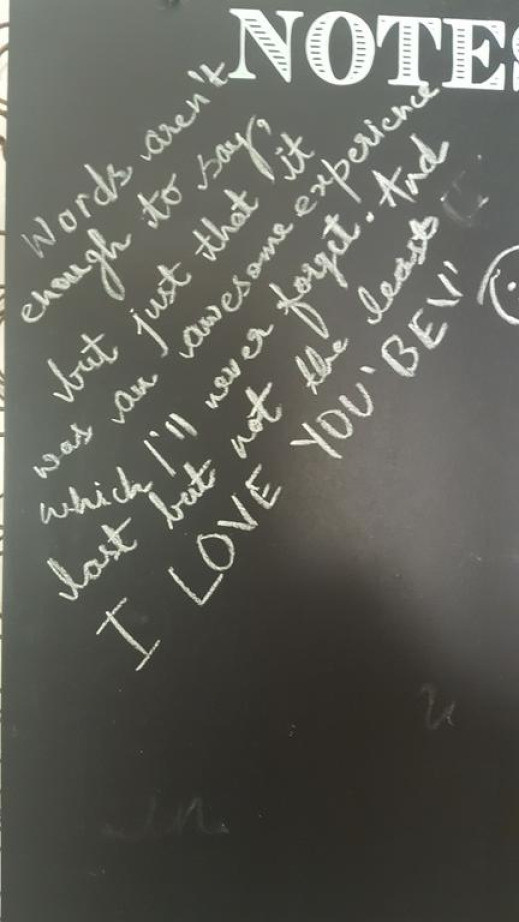 NOTES
Words aren't
enough to say,
but just that it
was an awesome experience
which I'll never forget. And
last but not the least
I LOVE YOU 'BEV'